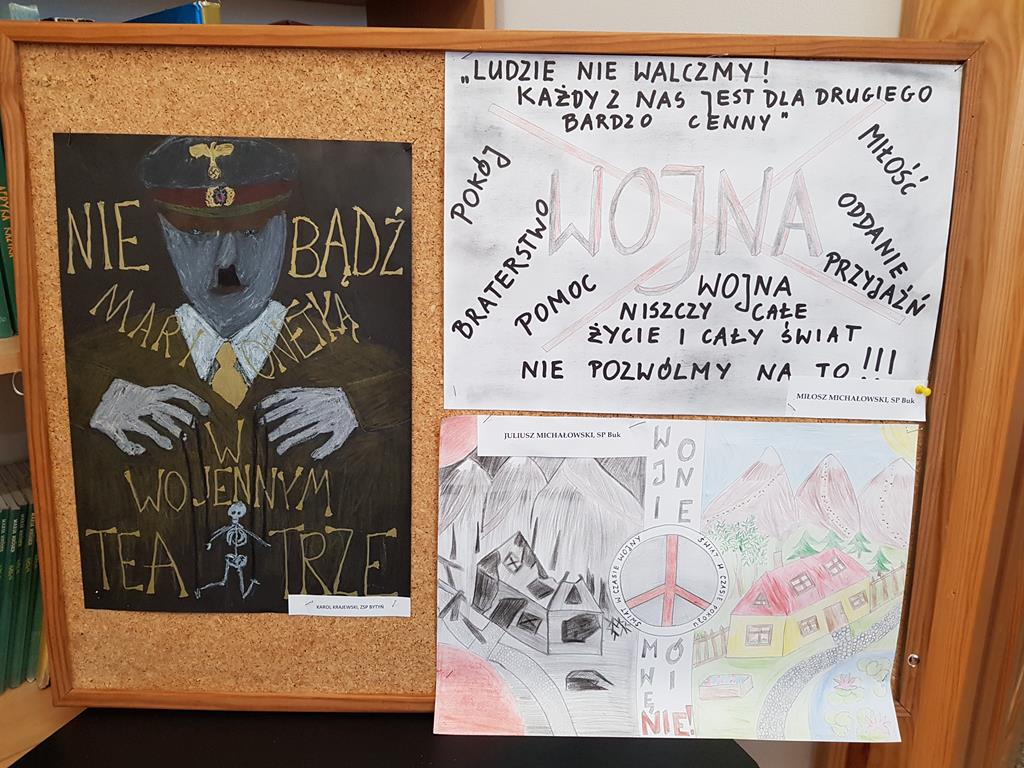 NIE BĄDŹ
MARYONETKĄ
W
WOJENNYM
TEATRZE
KAROL KRAJEWSKI, ZSP BYTYŃ
„LUDZIE NIE WALCZMY!
KAŻDY Z NAS JEST DLA DRUGIEGO
BARDZO CENNY"
WOJNA
POKÓJ
BRATERSTWO
POMOC
MIŁOŚĆ
ODDANIE
PRZYJAŹŃ
WOJNA
NISZCZY CAŁE
ŻYCIE I CAŁY ŚWIAT
NIE POZWÓLMY NA TO!!!
MIŁOSZ MICHAŁOWSKI, SP Buk
JULIUSZ MICHAŁOWSKI, SP Buk
WOJNIE
ŚWIAT W CZASIE WOJNY
ŚWIAT W CZASIE POKOJU
MÓWIĘ
NIE!